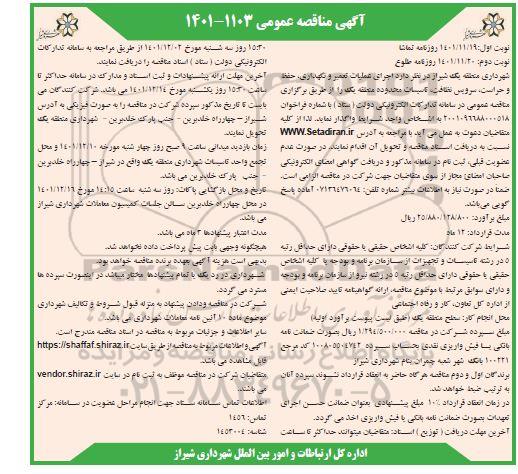 آگهی مناقصه عمومی ۱۱۰۳-۱۴۰۱
نوبت اول: ۱۴۰۱/۱۱/۱۹ روزنامه تماشا
نوبت دوم: ۱۴۰۱/۱۱/۲۰ روزنامه طلوع
شهرداری منطقه یک شیراز در نظر دارد اجرای عملیات تعمیر و نگهداری، حفظ
و حراست، سرویس نظافت، تاسیسات محدوده منطقه یک را از طریق برگزاری
مناقصه عمومی در سامانه تدارکات الکترونیکی دولت (ستاد) با شماره فراخوان
۲۰۰۱۰۹۶۶۸۸۰۰۰۵۱۸ به اشخاص واجد شرایط واگذار نماید. لذا از کلیه
متقاضیان دعوت به عمل می آید با مراجعه به آدرس WWW.Setadiran.ir
نسبت به دریافت اسناد مناقصه و تحویل آن اقدام نمایند. در صورت عدم
عضویت قبلی، ثبت نام در سامانه مذکور و دریافت گواهی امضای الکترونیکی
صاحبان امضای مجاز از سوی متقاضیان جهت شرکت در مناقصه الزامی است.
ضمنا در صورت نیاز به اطلاعات بیشتر شماره تلفن: ۰۷۱۳۶۴۷۶۰۶۴ آماده پاسخ
گویی می‌باشد.
مبلغ برآورد: ۲۵/۸۸۰/۱۲۸/۸۰۰ ریال
مدت قرارداد: ۱۲ ماه
شرایط شرکت کنندگان: کلیه اشخاص حقیقی یا حقوقی دارای حداقل رتبه
۵ در رشته تاسیسات و تجهیزات از سازمان برنامه و بودجه یا کلیه اشخاص
حقیقی یا حقوقی دارای حداقل رتبه ۵ در رشته نیرو از سازمان برنامه و بودجه
و دارای سوابق مرتبط با موضوع مناقصه، ارائه گواهینامه تایید صلاحیت ایمنی
از اداره کل تعاون، کار و رفاه اجتماعی
محل انجام کار: سطح منطقه یک (طبق لیست پیوست برآورد اولیه)
مبلغ سپرده شرکت در مناقصه ۱/۲۹۴/۵۰۰/۰۰۰ ریال بصورت ضمانت نامه
بانکی یا فیش واریزی نقدی بحساب سپرده ۱۰۰۸۰۵۰۴۷۴۲ کد مرجع
۱۰۰۲۲۱ بانک شهر شعبه چمران بنام شهرداری شیراز
برندگان اول و دوم مناقصه هرگاه حاضر به انعقاد قرارداد نشوند سپرده آنان
به ترتیب ضبط خواهد شد.
در زمان انعقاد قرارداد ۱۰٪ مبلغ پیشنهادی بعنوان ضمانت حسن اجرای
تعهدات بصورت ضمانت نامه بانکی یا فیش واریزی اخذ می گردد.
آخرین مهلت دریافت (توزیع) اسناد: متقاضیان میتوانند حداکثر تا ساعت
۱۵:۳۰ روز سه شنبه مورخ ۱۴۰۱/۱۲/۰۲ از طریق مراجعه به سامانه تدارکات
الکترونیکی دولت (ستاد) اسناد مناقصه را دریافت نمایند.
آخرین مهلت ارائه پیشنهادات و ثبت اسناد و مدارک در سامانه حداکثر تا
ساعت ۱۵:۳۰ روز یکشنبه مورخ ۱۴۰۱/۱۲/۱۴ می باشد. شرکت کنندگان می
بایست تا تاریخ مذکور سپرده شرکت در مناقصه را به صورت فیزیکی به آدرس
شیراز – چهارراه خلدبرین – جنب پارک خلدبرین – شهرداری منطقه یک
تحویل نمایند.
زمان بازدید میدانی ساعت ۹ صبح روز چهار شنبه مورخه ۱۴۰۱/۱۲/۱۰ و محل
تجمع واحد تاسیسات شهرداری منطقه یک واقع در شیراز – چهارراه خلدبرین
– جنب پارک خلدبرین می باشد.
تاریخ و محل بازگشایی پاکات: روز سه شنبه ساعت ۱۴:۱۵ مورخ ۱۴۰۱/۱۲/۱۶
در محل چهارراه خلدبرین سالن جلسات کمیسیون معاملات شهرداری شیراز
می باشد.
مدت اعتبار پیشنهادها ۳ ماه می باشد.
هیچگونه وجهی بابت پیش پرداخت داده نخواهد شد.
بدیهی است هزینه آگهی بعهده برنده مناقصه خواهد بود.
شهرداری در رد یک یا تمام پیشنهادها مختار میباشد در اینصورت سپرده ها
مسترد می گردد.
شرکت در مناقصه و دادن پیشنهاد به منزله قبول شروط و تکالیف شهرداری
موضوع ماده ۱۰ آئین نامه معاملات شهرداری می باشد.
سایر اطلاعات و جزئیات مربوط به مناقصه در اسناد مناقصه مندرج است.
آگهی و اطلاعات مربوط به مناقصه از طریق سایت https://shaffaf.shiraz.ir
قابل مشاهده می باشد.
متقاضیان شرکت در مناقصه موظف به ثبت نام در سایت vendor.shiraz.ir
می باشند.
اطلاعات تماس سامانه ستاد جهت انجام مراحل عضویت در سامانه: مرکز
تماس: ۱۴۵۶
شناسه: ۱۴۵۳۰۰۴
اداره کل ارتباطات و امور بین الملل شهرداری شیراز